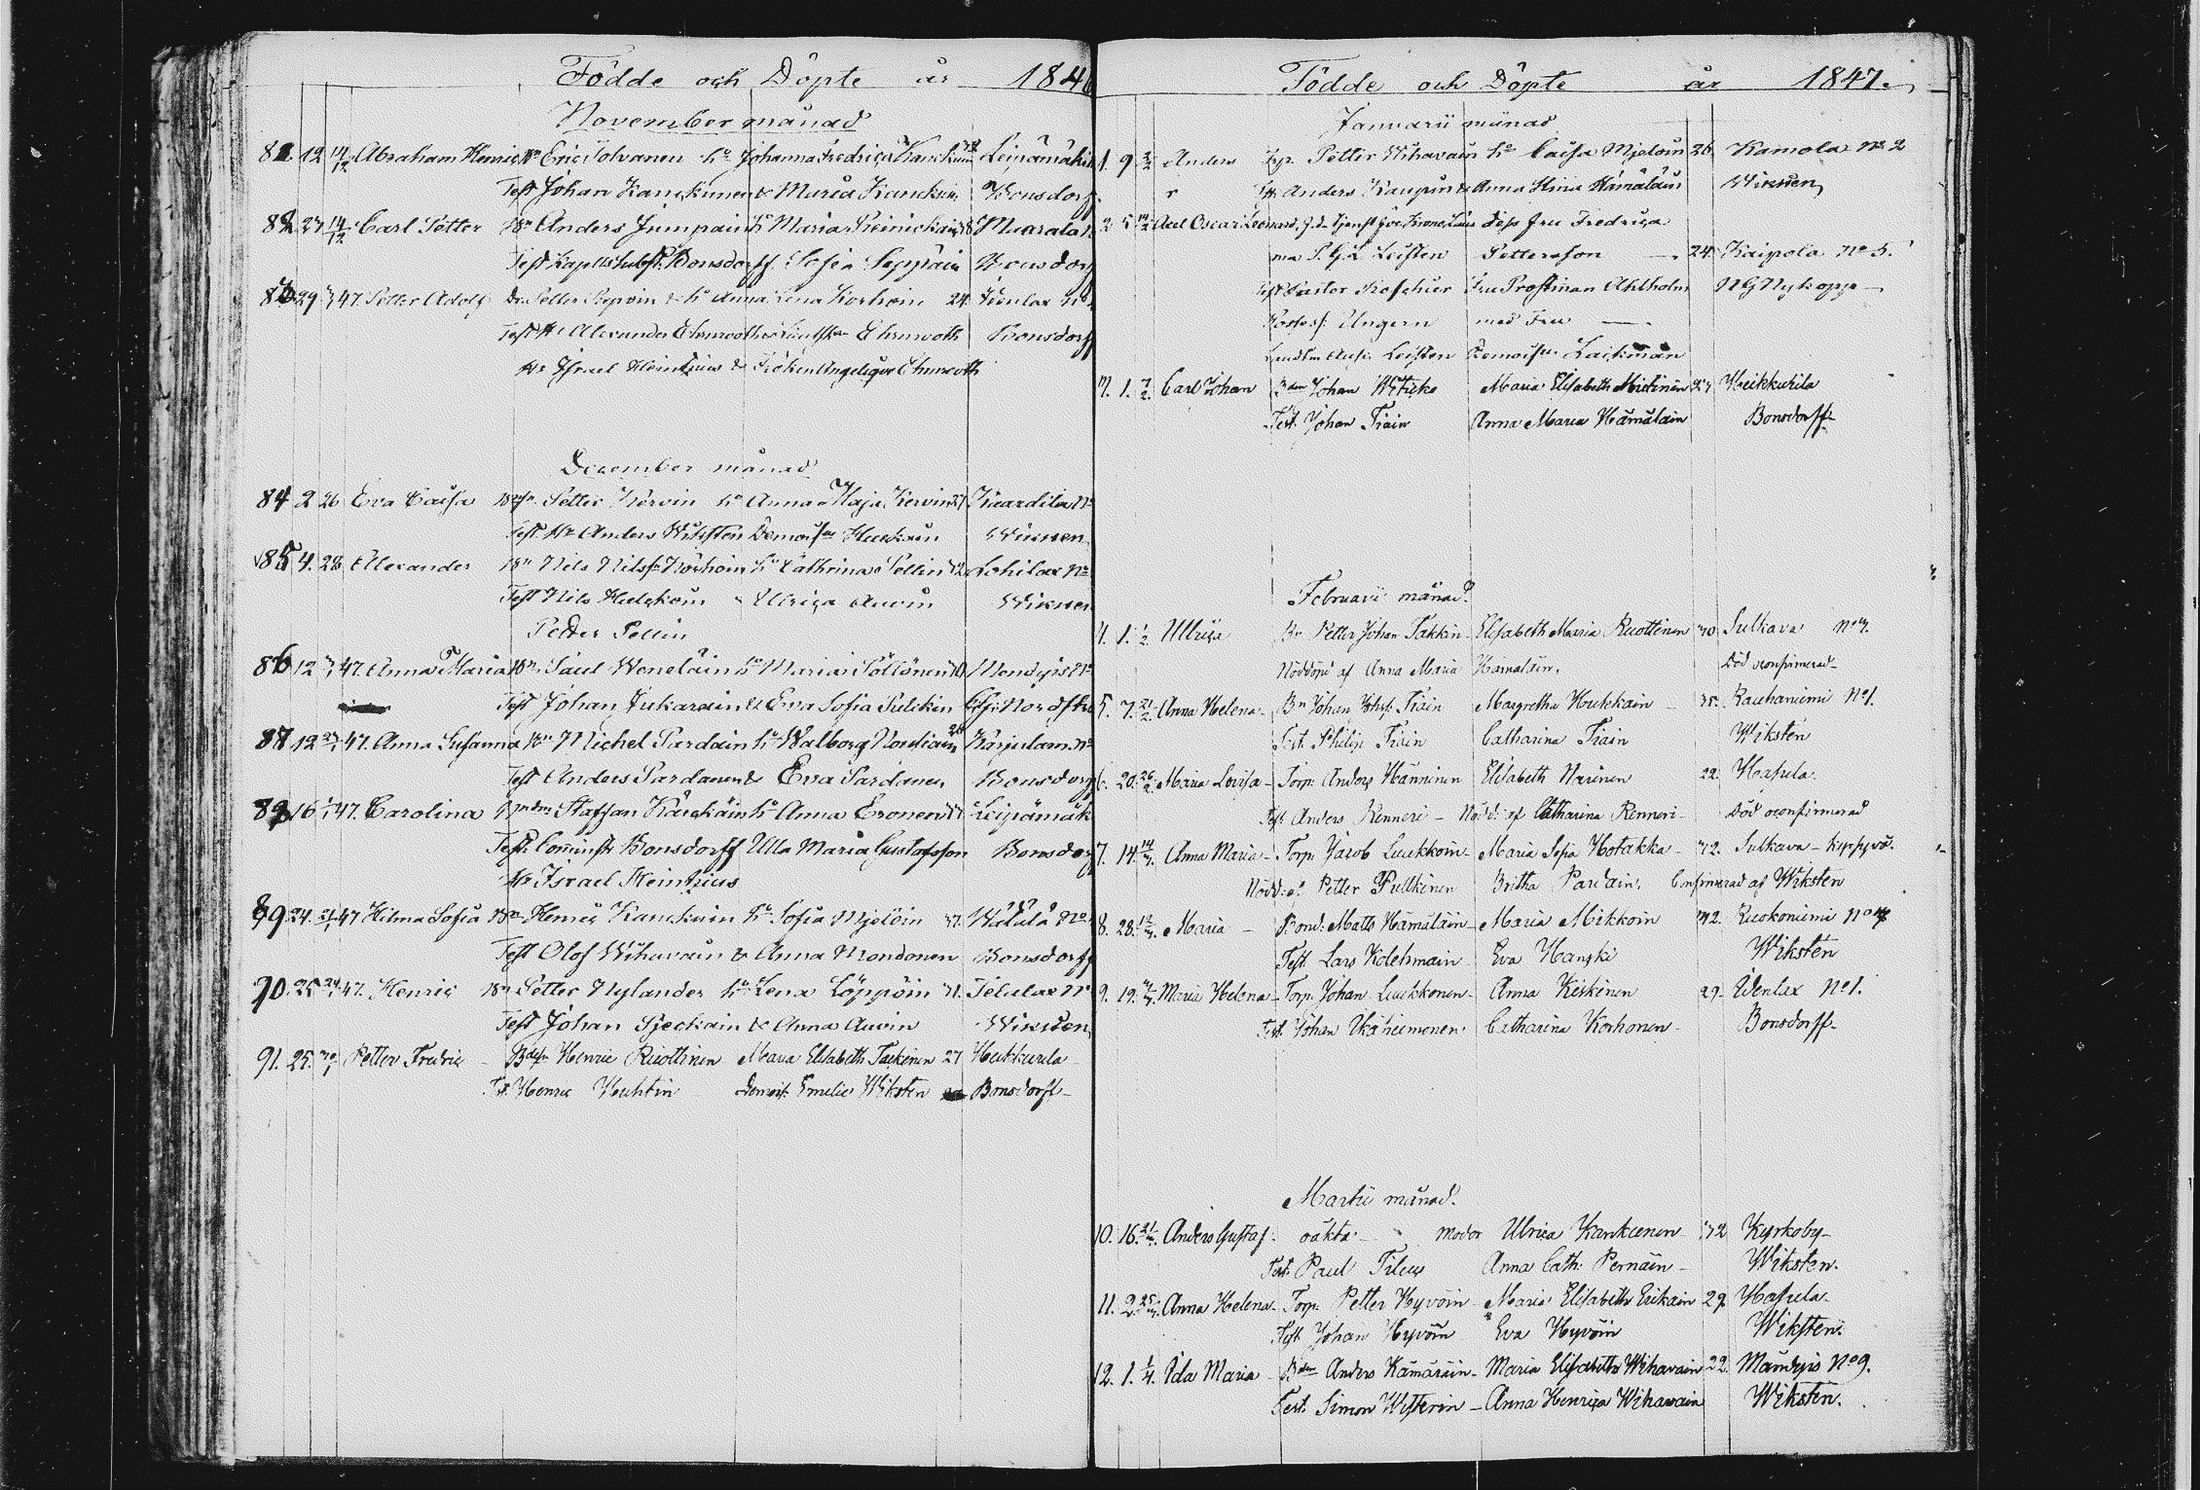 Födde och Döpte år 1846
November månad
81. 12 14/12 Abraham Henric Bn Eric Tolvanen hu Johanna Fredrica Kanckuin 32 Leipämäki
Test Johan Kanckunen & Maria Kanckuin Bonsdorff
82 27 14/12 Carl Petter Bn Anders Jumpain hu Maria Reinickain Maarala N
Test Kaplls Subst. Bonsdorff Sofia Seppäin Bonsdorff
83 29 47. Petter Adolf Petter Repoin & hu Anna Lena Korhoin 24 Idenlax No
Test Hr Alexander Ehrnrooth Ehrnrooth Bonsdorff
Hr Israel Heintzius & Fröken Angelique Ehrnrooth
December månad
84 2 26 Eva Caisa Petter Kervin hu Anna Maja Kervin Kaardila No
Test Hr Anders Wiksten Demoisse Huskoin Wiksten
85 4. 28 Allexander Bn Nils Nilss Korhoin hu Cathrina Pellin 32 Lohilax No
Test Nils Hulskoin & Ulrica Auvin Wiksten
Petter Pellin
86 12 47. Anna Maria Bn Paul Weneläin hu Maria Pöllönen 40 Mondyis No
Test Johan Jukarain & Eva Sofia Pulckin
87 12 47. Anna Susanna Bn Michel Pardain hu Walborg Nousiain 28 Karjulam. No
Test Anders Pardanen & Eva Pardanen Bonsdorff
88 16 47. Carolina Staffan Kärckäin hu Anna Eronen Leipämäk
Test Cominstr Bonsdorff Ulla Maria Gustafsson Bonsdorff
Hr Israel Heintzius
89 24. 47 Hilma Sofia Bn Henric Kanckuin hu Sofia Mjelöin 37. Wätälä No
Test Olof Wihavain & Anna Mondonen Bonsdorff
90. 25 47. Henric Bn Petter Nylander hu Lena Löppöin 31. Telalax No
Test Johan Tjeckain & Anna Auvin Wiksten
91. 25. Petter Fredric Henric Ruottinen Maria Elisabeth Taskinen 27 Heikkurila
T. Henric Huhtin Demois. Emelie Wiksten Bonsdorff
Födde och Döpte år 1847.
Januarii månad
1. 9 Anders Trp. Petter Wihavain hu Caisa Mjeloin 26. Kamola No 2
Tst. Anders Kaupin & Anna Stina Hämäläin Wiksten
2 5 Axel Oscar Leonard, Dess Fru Fredrica
P. G. L Leisten Pettersson 24. Kaipola No 5.
Test Pastor Roschier Fru Prostinan Ahlholm N G Nykopp
Ungern med Fru
Leisten Demoisse. Lackman
3. 1. 7/2. Carl Johan Johan Wituka Maria Elisabeth Mietinen 27. Heikkurila
Test. Johan Tiain Anna Maria Hämäläin Bonsdorff
Februarii månad.
4. 1. 1/2 Ullrica Bn Petter Johan Takkin Elisabeth Maria Ruottinen 30 Sulkava No 7.
Nöddöpt af Anna Maria Hämäläin. Död oconfirmerad
5. 7. 21/2. Anna Helena Bn Johan Johss. Tiain Margretha Hukkain 35. Rauhaniemi No 1.
Test. Philip Tiain Catharina Tiain Wikstén
6. 20. 26/2. Maria Lovisa Torp. Anders Hänninen Elisabeth Narinen 22. Hasula
Test Anders Renneri Nödd: af Catharina Renneri Död oconfirmerad
7. 14. Anna Maria Torp. Jacob Luukkoin Maria Sofia Hotakka 32. Sulkava - Kypyvö.
Nödd: af Petter Pullkinen Britha Pardain. Confirmerad af Wikstén
8. 28. Maria Bond. Matts Hämäläin Maria Mikkoin 42. Ruokoniemi No 4
Test Lars Kolehmain Eva Hanski Wikstén
9. 19. Maria Helena Torp. Johan Luukkonen Anna Kiiskinen 29. Idenlax No 1.
Test. Johan Catharina Korhonen Bonsdorff
Martii månad.
10. 16. Anders Gustaf oäkta moder Ulrica Kankunen 32 Kyrkoby
Test. Paul Tilus Anna Cath. Pernäin Wikstén.
11. 2 Anna Helena Torp. Petter Hyvöin Maria Elisabeth Erikain 29. Hasula.
Test. Johan Hyvöin Eva Hyvöin Wikstén.
12. 1. 1/4. Ida Maria Anders Kämäräin Maria Elisabeth Wihavain 22. Mändyis No 9.
Test. Simon Wisterin Anna Henrica Wihavain Wikstén.